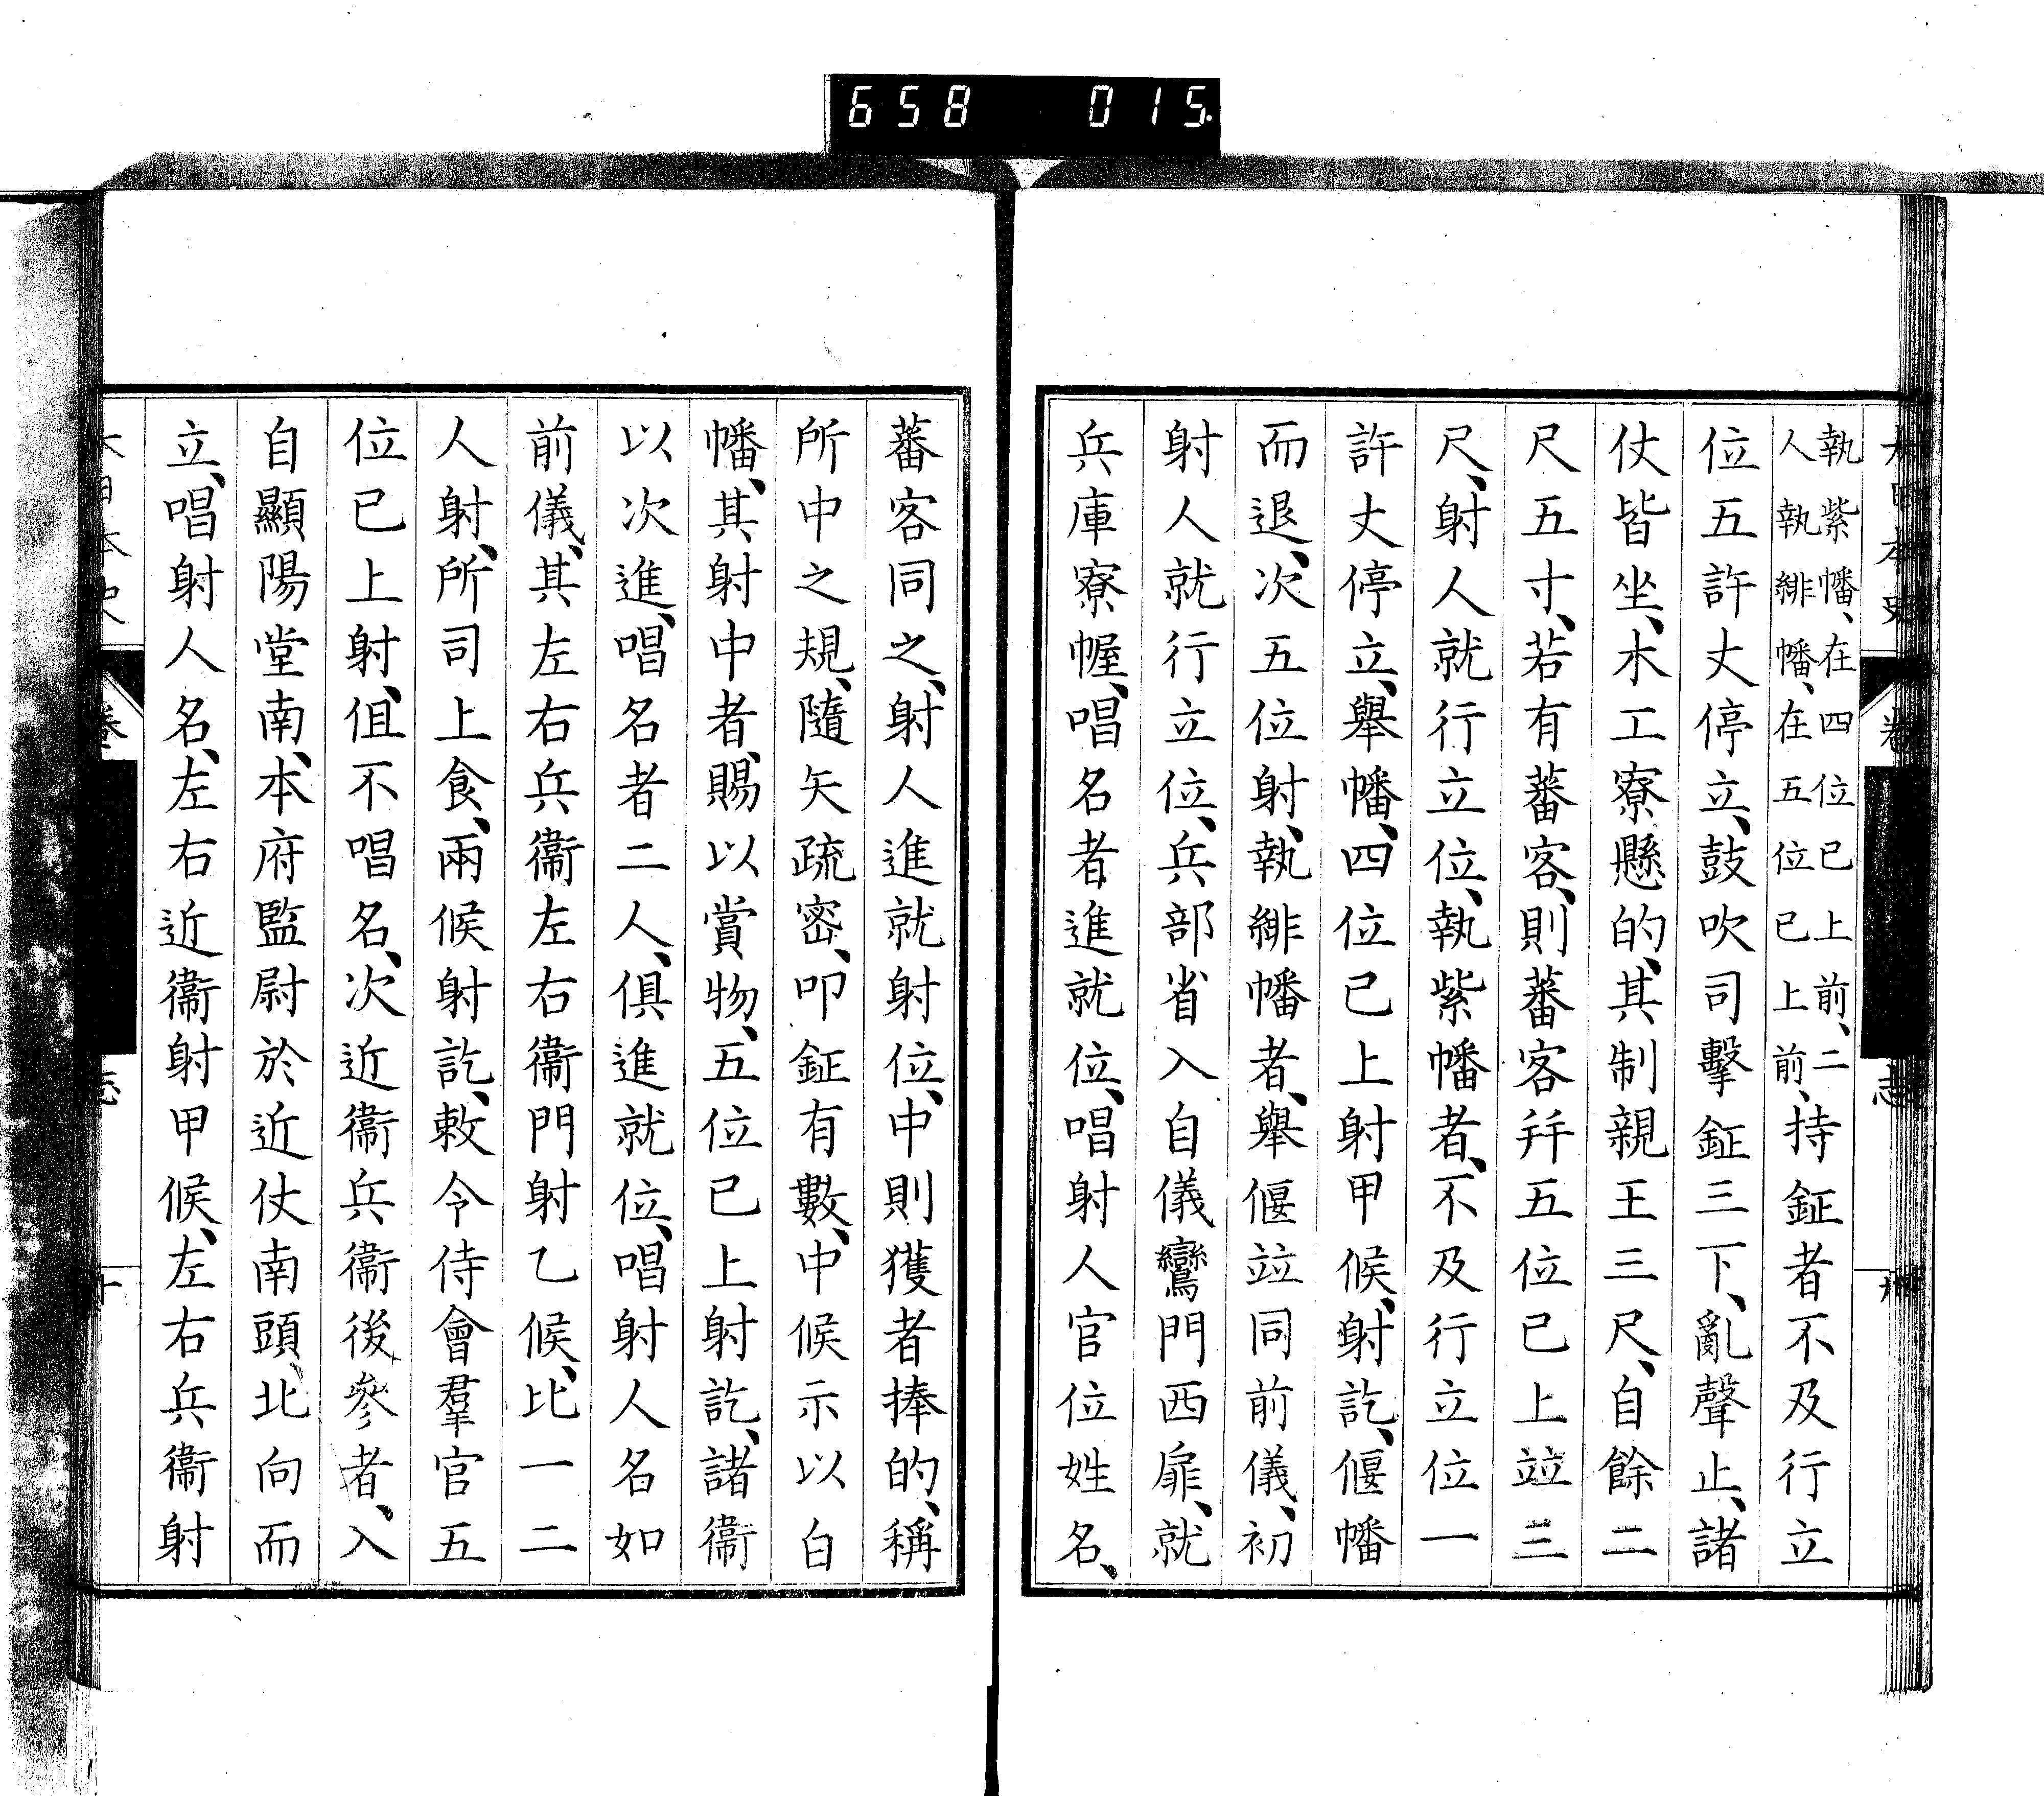 658 015
執紫幡、在四位已上前、二
人執緋幡、在五位已上前、持鉦者不及行立
位五許丈停立、鼓吹司擊鉦三下、亂聲止、諸
仗皆坐、木工寮懸的、其制親王三尺、自餘二
尺五寸、若有蕃客、則蕃客幷五位已上竝三
尺、射人就行立位、執紫幡者、不及行立位一
許丈停立、舉幡、四位已上射甲候、射訖、偃幡
而退、次五位射、執緋幡者、舉偃竝同前儀、初
射人就行立位、兵部省入自儀鸞門西扉、就
兵庫寮幄、唱名者進就位、唱射人官位姓名、
蕃客同之、射人進就射位、中則獲者捧的、稱
所中之規、隨矢疏密、叩鉦有數、中候示以白
幡、其射中者、賜以賞物、五位已上射訖、諸衞
以次進、唱名者二人、俱進就位、唱射人名如
前儀、其左右兵衞左右衞門射乙候、比一二
人射、所司上食、兩候射訖、敕令侍會羣官五
位已上射、但不唱名、次近衞兵衞後參者、入
自顯陽堂南、本府監尉於近仗南頭、北向而
立、唱射人名、左右近衞射甲候、左右兵衞射